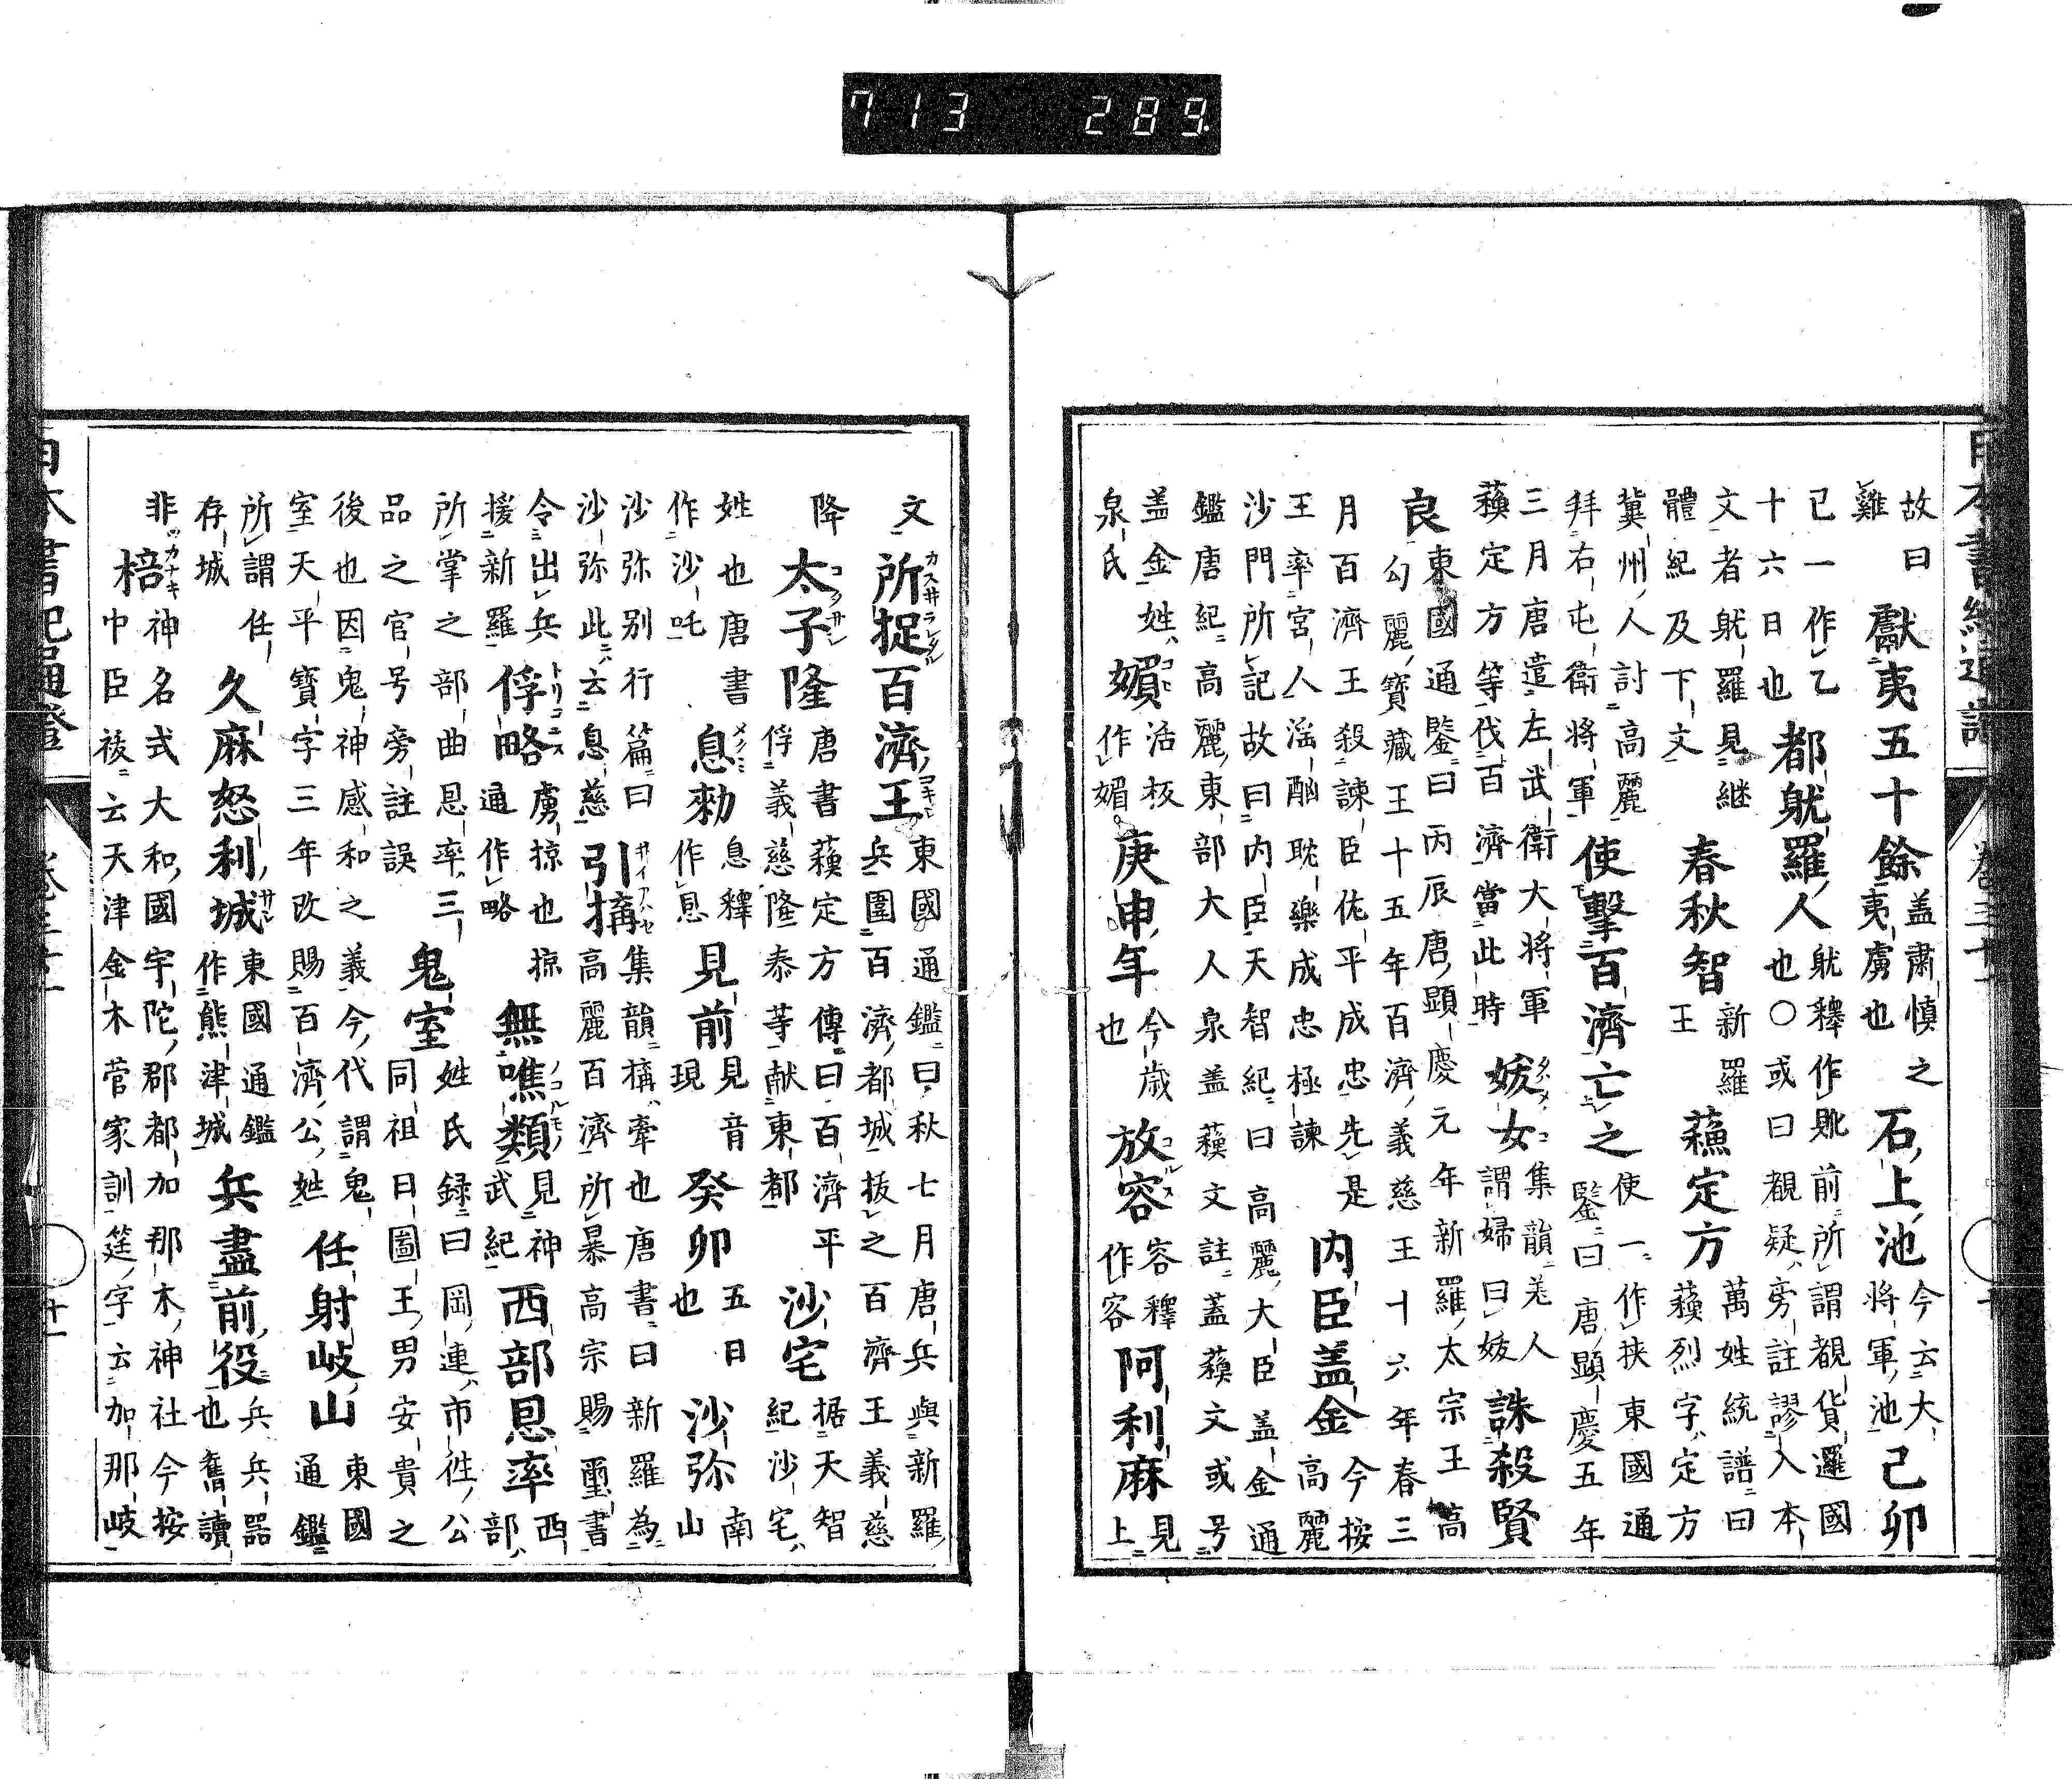 713 289
故曰
雞
獻夷五十餘
蓋肅慎之
夷虜也
石上池
今云大
將軍池
己卯
已一作乙
十六日也
都貨羅人
文者貨羅見継
體紀及下文
春秋智
新羅
王
蘓定方
萬姓統譜曰
蘓烈字定方
冀州人討高麗
拜右屯衛將軍
使擊百濟亡之
使一作挾東國通
鑒曰唐顯慶五年
三月唐遣左武衛大將軍
蘓定方等伐百濟當此時
媛女
集韻羌人
謂婦曰媛
誅殺賢
良
東國通鑒曰丙辰唐顯慶元年新羅太宗王高
勾麗寶藏王十五年百濟義慈王十六年春三
月百濟王殺諫臣佐平成忠先是
王率宮人淫酗耽樂成忠極諫
內臣蓋金
今按
高麗
沙門所記故曰內臣天智紀曰高麗大臣蓋金通
鑑唐紀高麗東部大人泉蓋蘓文註蓋蘓文或号
蓋金姓
泉氏
媚
活板
作媚
庚申年
今歳
也
放容
容釋
作容
阿利麻
見
上
文
所捉百濟王
東國通鑑曰秋七月唐兵與新羅
兵圍百濟都城拔之百濟王義慈
降
太子隆
唐書蘓定方傳曰百濟平
俘義慈隆泰等献東都
沙宅
据天智
紀沙宅
姓也唐書
作沙吒
息勑
息釋
作恩
見前
見音
現
癸卯
五日
也
沙弥
南
山
沙弥别行篇曰
沙弥此云息慈
引搆
集韻搆牽也唐書曰新羅為
高麗百濟所暴高宗賜璽書
令出兵
援新羅
俘略
虜掠也掠
通作略
無噍類
見神
武紀
西部恩率
西
部
所掌之部曲恩率三
品之官号旁註誤
鬼室
姓氏録曰岡連市徃公
同祖目圖王男安貴之
後也因鬼神感和之義今代謂鬼
室天平寶字三年改賜百濟公姓
任射岐山
東國
通鑑
所謂任
存城
久麻怒利城
東國通鑑
作熊津城
兵盡前役
兵兵器
也舊讀
非
棓
神名式大和國宇陀郡都加那木神社今按
中臣祓云天津金木菅家訓筳字云加那岐